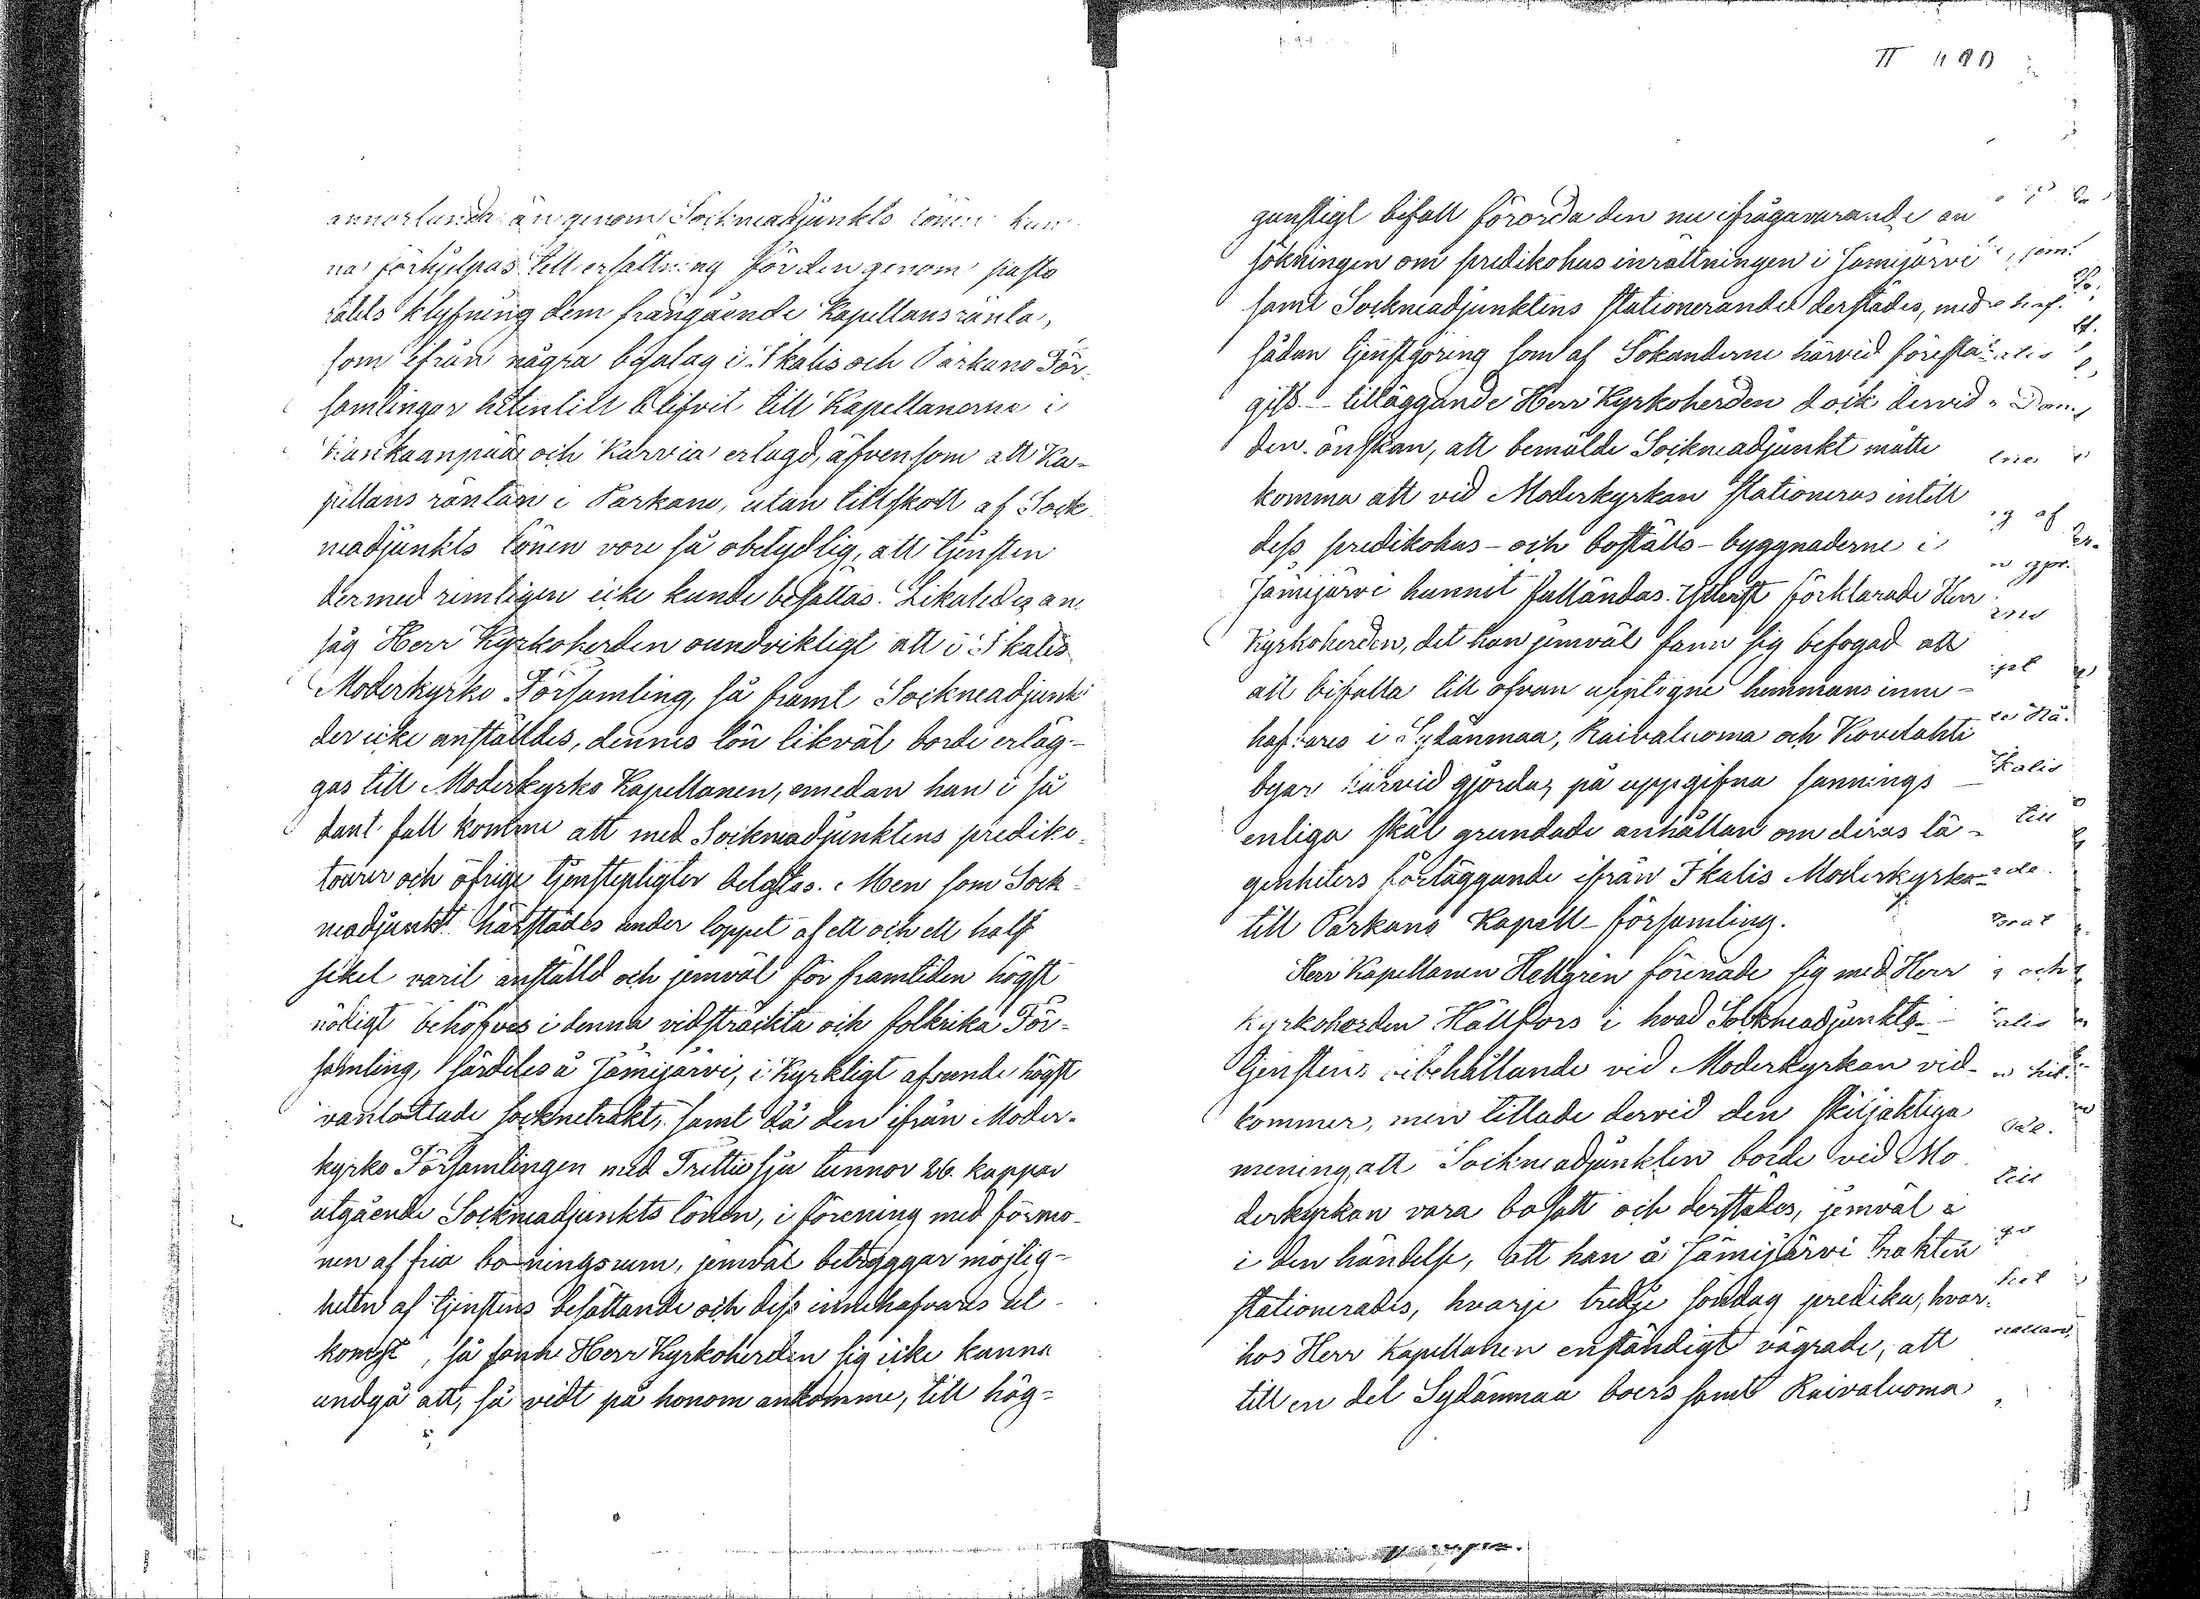 annorlunda än genom Sockneadjunkts lönen kun
na förhjelpas till ersättning för den genom pasto
ratets klyfning dem frångående Kapellansränta,
som ifrån några byalag i Ikalis och Parkano För-
samlingar hitintill blifvit till Kapellanerne i
Kankaanpää och Karvia erlagd, äfvensom att Ka-
pellans räntan i Parkano, utan tillskott af Sock
neadjunkts lönen vore så obetydlig, att tjensten
dermed rimligen icke kunde besättas. Likaledes an
såg Herr Kyrkoherden oundvikligt att i Ikalis
Moderkyrko Församling, så framt Sockneadjunkt
der icke anställdes, dennes lön likväl borde erläg-
gas till Moderkyrko Kapellanen, emedan han i så
dant fall komme att med Sockneadjunktens prediko-
tourer och öfrige tjenstepligter belastas. Men som Sock-
neadjunkt härstädes under loppet af ett och ett half
sekel varit anställd och jemväl för framtiden högst
nödigt behöfves i denna vidsträckta och folkrika För-
samling, särdeles å Jämijärvi, i Kyrkligt afseende högst
vanlottade socknetrakt, samt då den ifrån Moder-
kyrko Församlingen med Trettiosju tunnor 26. kappar
utgående Sockneadjunkts lönen, i förening med förmo-
nen af fria boningsrum, jemväl betryggar möjlig-
heten af tjenstens besättande och dess innehafvares ut-
komst, så fann Herr Kyrkoherden sig icke kunna
undgå att, så vidt på honom ankomme, till hög-
II
gunstigt bifall förorda den nu ifrågavarande an
sökningen om predikohus inrättningen i Jämijärvi
samt Sockneadjunktens stationerande derstädes, med
sådan tjenstgöring som af Sökanderne härvid föresla-
gits tilläggande Herr Kyrkoherden dock dervid
den önskan, att bemälde Sockneadjunkt måtte
komma att vid Moderkyrkan stationeras intill
dess predikohus- och boställs-byggnaderne i
Jämijärvi hunnit fulländas. Ytterst förklarade Herr
Kyrkoherden, det han jemväl fann sig befogad att
att bifalla till ofvan upptagne hemmans inne-
hafvares i Sydänmaa, Raivaluoma och Kovelahti
byar härvid gjorda, på uppgifna sannings
enliga skäl grundade anhållan om deras lä-
genheters förläggande ifrån Ikalis Moderkyrko-
till Parkano Kapell-församling.
Herr Kapellanen Hellgrén förenade sig med Herr
Kyrkoherden Hällfors i hvad Sockneadjunkts-
tjenstens bibehållande vid Moderkyrkan vid-
kommer, men tillade dervid den skiljaktiga
mening, att Sockneadjunkten borde vid Mo
derkyrkan vara bosatt och derstädes, jemväl i
i den händelse, att han å Jämijärvi trakten
stationerades, hvarje tredje söndag predika, hvar-
hos Herr Kapellanen enständigt vägrade, att
till en del Sydänmaa boers samt Raivaluoma